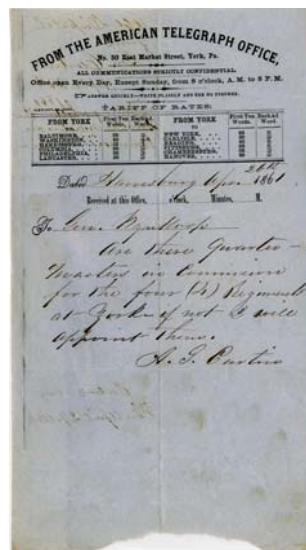 FROM THE AMERICAN TELEGRAPH OFFICE,
No. 30 East Market Street, York, Pa.
ALL COMMUNICATIONS STRICTLY CONFIDENTIAL.
Office open Every Day, Except Sunday, from 8 o'clock, A. M. to 8 P. M.
ANSWER QUICKLY—WRITE PLAINLY AND USE NO FIGURES.
TARIFF OF RATES:
FROM YORK TO First Ten Words. Each Ad Word. FROM YORK TO First Ten Words. Each Ad Word.
BALTIMORE, NEW YORK,
WASHINGTON, CARLISLE,
HARRISBURG, READING,
COLUMBIA, PITTSBURG,
PHILADELPHIA, CHAMBERSBURG,
LANCASTER, HANOVER,
Dated Harrisburg Apr 1861
Received at this Office, o'clock, Minutes, M.
To Gen. Wynkoop
Are there Quarter-
masters in Commission
for the four (4) Regiments
at York if not I will
appoint them.
A. G. Curtin